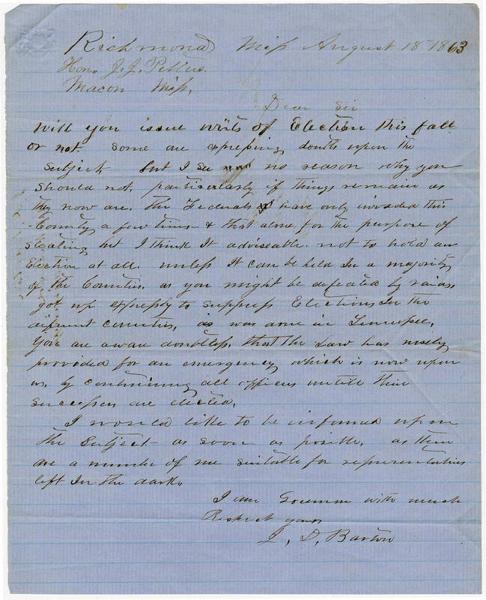 Richmond Miss August 18 1863
Hon. J. J. Pettus
Macon Miss.
Dear Sir
Will you issue writs of Election this fall
or not some are expressing doubts upon the
subject but I see no reason why you
should not, particularly if things remain as
they now are. The Federals have only invaded this
County a few times & that alone for the purpose of
stealing but I think it adviseable not to hold an
Election at all unless it can be held in a majority
of the Counties, as you might be defeated by raids
got up expressly to suppress Elections in the
different counties, as was done in Tennessee,
You are aware doubtless that the Law has wisely
provided for an emergency which is now upon
us by continuing all officers untill their
successors are elected,
I would like to be informed upon
the subject as soon as possible, as there
are a number of men suitable for representatives
left in the dark.
I am Governor with much
Respect yours
J. D. Barton